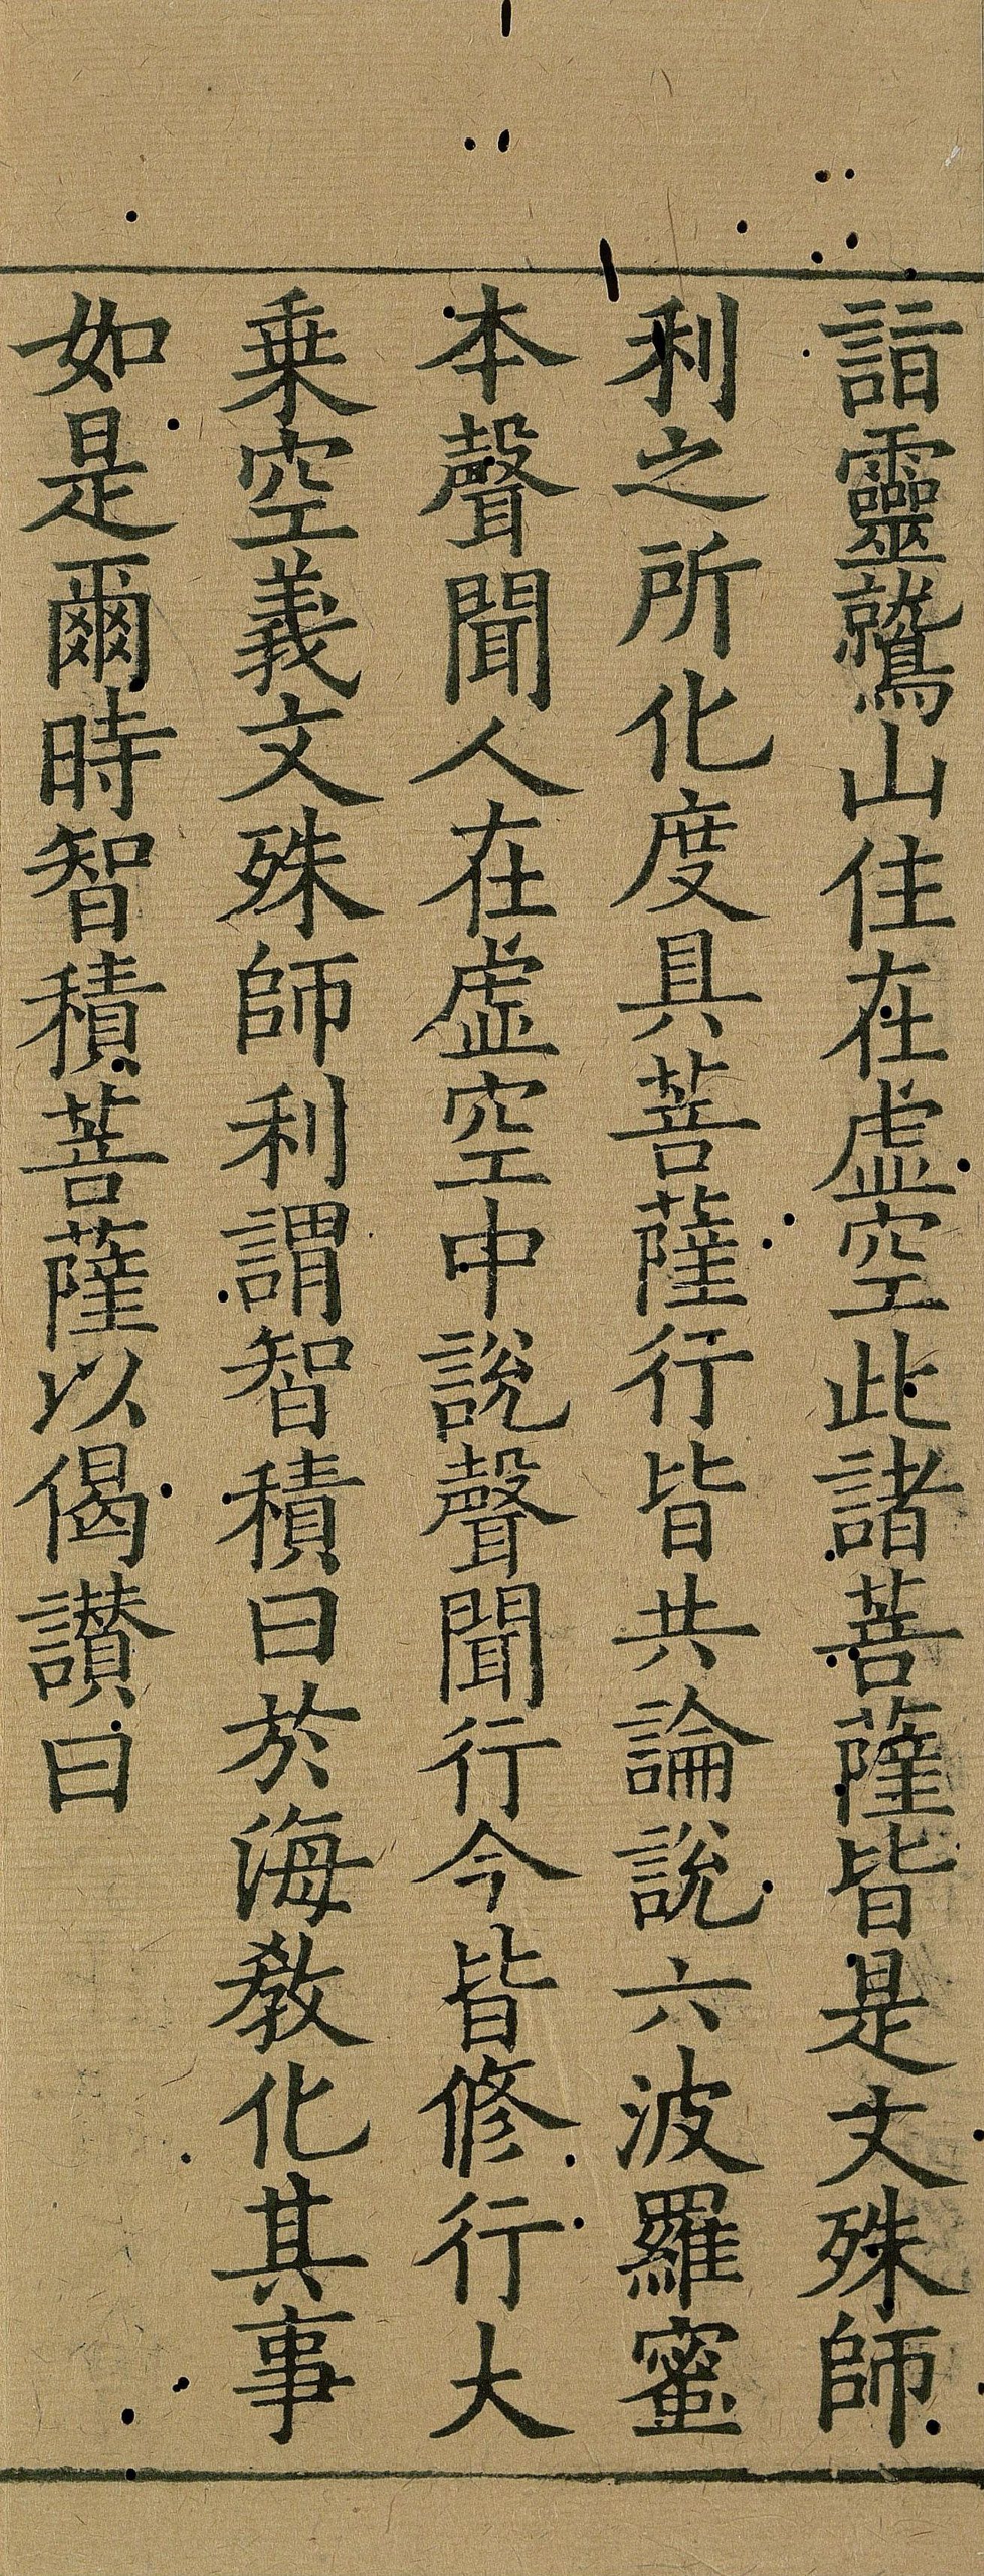 詣靈鷲山住在虛空此諸菩薩皆是文殊師
利之所化度具菩薩行皆共論說六波羅蜜
本聲聞人在虛空中說聲聞行今皆修行大
乗空義文殊師利謂智積曰於海教化其事
如是爾時智積菩薩以偈讃曰